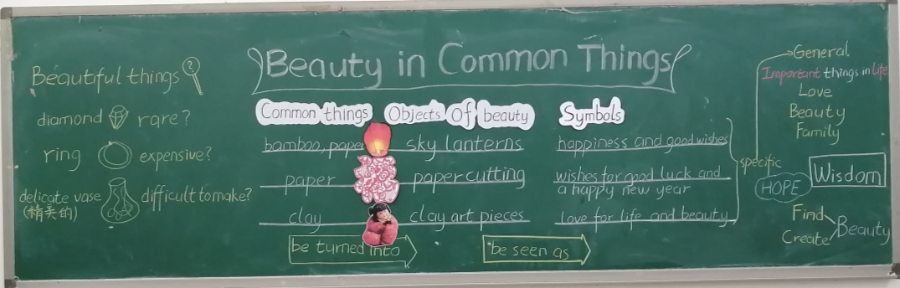 Beauty in Common Things
Beautiful things ?
diamond rare?
ring expensive?
delicate vase difficult to make?
(精美的)
Common things Objects of beauty Symbols
bamboo, paper sky lanterns happiness and good wishes
paper paper cutting wishes for good luck and
a happy new year
clay clay art pieces love for life and beauty
be turned into be seen as
specific
General
Important things in life
Love
Beauty
Family
HOPE Wisdom
Find
Create Beauty